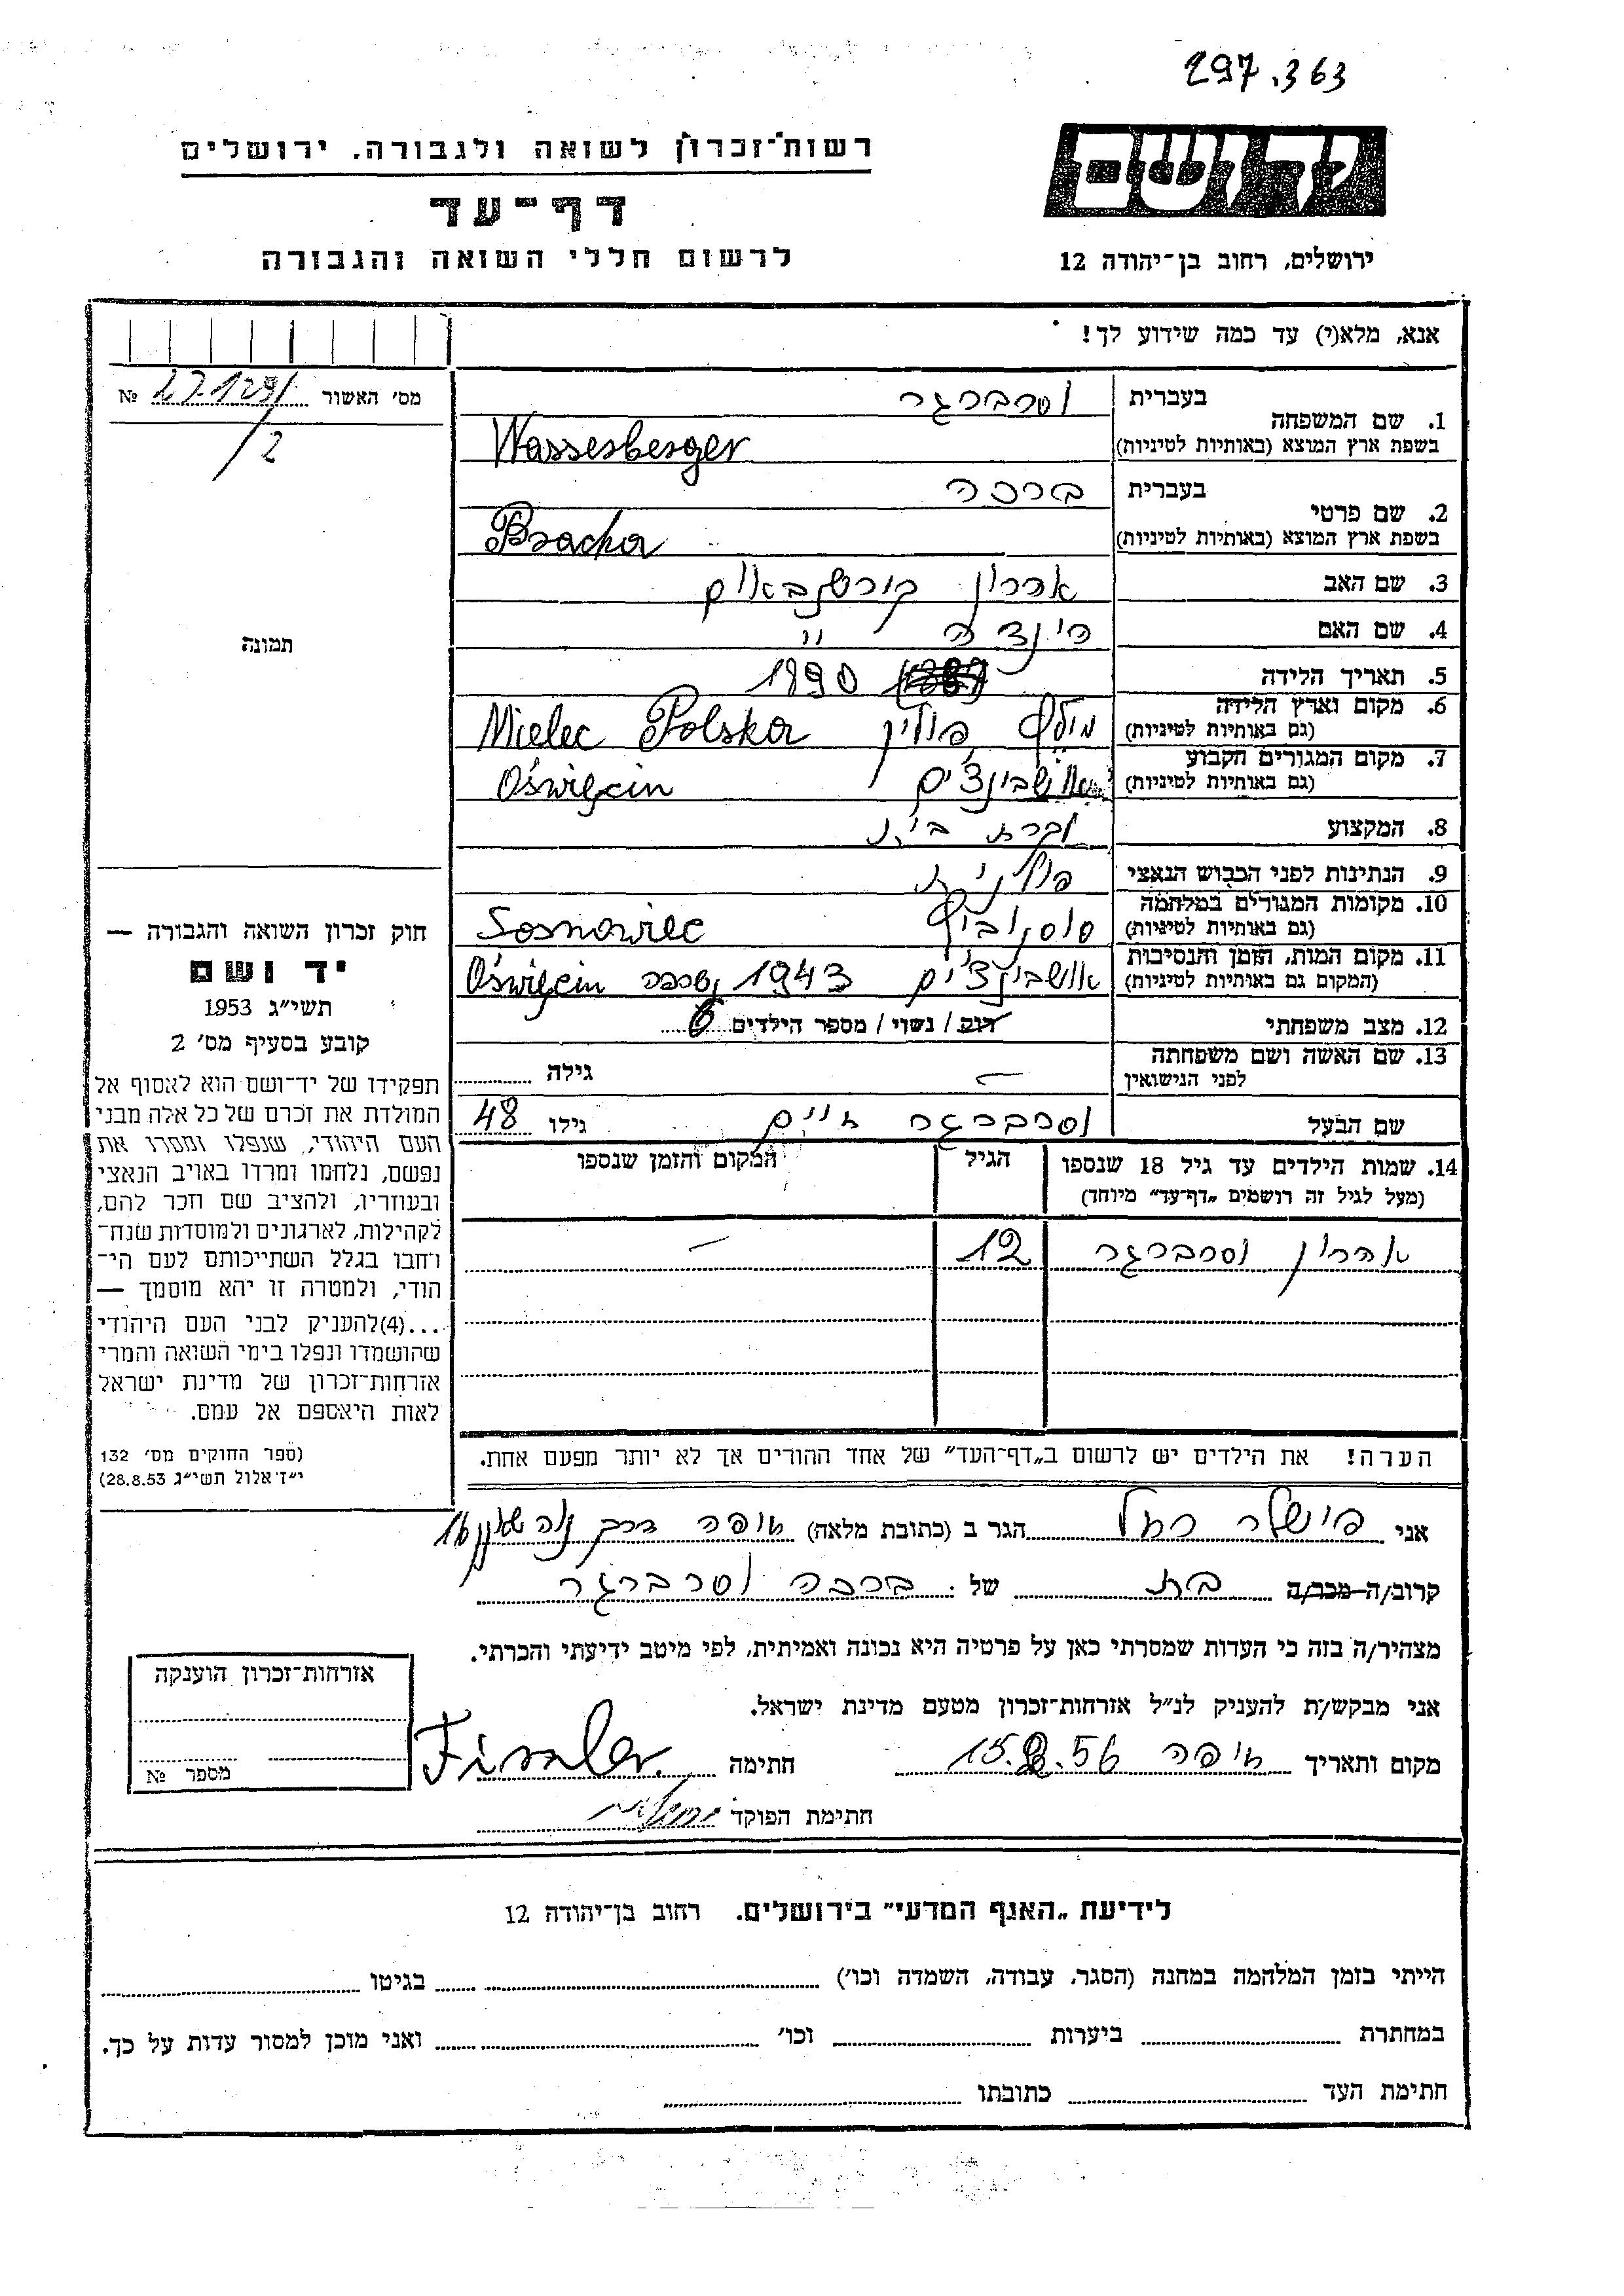 297.363
ידושם
רשות־זכרון לשואה ולגבורה. ירושלים
דף־עד
לרשום חללי השואה והגבורה
ירושלים, רחוב בן־יהודה 12
אנא, מלא(י) עד כמה שידוע לך!
מס׳ האשור №
בעברית וסרברגר
1. שם המשפחה
בשפת ארץ המוצא (באותיות לטיניות) Wasserberger
בעברית ברכה
2. שם פרטי
בשפת ארץ המוצא (באותיות לטיניות) Bracha
3. שם האב אהרון
4. שם האם הינצה "
5. תאריך הלידה 1890
6. מקום וארץ הלידה
(גם באותיות לטיניות) מילץ פולין Mielec Polska
7. מקום המגורים הקבוע
(גם באותיות לטיניות) אושבינצ׳ים Oświęcin
8. המקצוע עקרת בית
9. הנתינות לפני הכבוש הנאצי פולנית
10. מקומות המגורים במלחמה
(גם באותיות לטיניות) סוסנוביץ Sosnowiec
11. מקום המות, הזמן והנסיבות
(המקום גם באותיות לטיניות) אושבינצ׳ים 1943 נשרפה Oświęcin
12. מצב משפחתי רווק / נשוי / מספר הילדים 6
13. שם האשה ושם משפחתה
לפני הנישואין — גילה
שם הבעל וסרברגר חיים גילו 48
14. שמות הילדים עד גיל 18 שנספו הגיל המקום והזמן שנספו
(מעל לגיל זה רושמים „דף־עד״ מיוחד)
אהרון וסרברגר 12 —
הערה! את הילדים יש לרשום ב„דף־העד״ של אחד ההורים אך לא יותר מפעם אחת.
תמונה
חוק זכרון השואה והגבורה —
יד ושם
תשי״ג 1953
קובע בסעיף מס׳ 2
תפקידו של יד־ושם הוא לאסוף אל
המולדת את זכרם של כל אלה מבני
העם היהודי, שנפלו ומסרו את
נפשם, נלחמו ומרדו באויב הנאצי
ובעוזריו, ולהציב שם וזכר להם,
לקהילות, לארגונים ולמוסדות שנח־
רחבו בגלל השתייכותם לעם הי־
הודי, ולמטרה זו יהא מוסמך —
...(4)להעניק לבני העם היהודי
שהושמדו ונפלו בימי השואה והמרי
אזרחות־זכרון של מדינת ישראל
לאות היאספם אל עמם.
(ספר החוקים מס׳ 132
י״ז אלול תשי״ג 28.8.53)
אני פישלר רחל הגר ב (כתובת מלאה) חיפה דרך נוה שאנן
קרוב/ה מכר/ה בת של ברכה וסרברגר
מצהיר/ה בזה כי העדות שמסרתי כאן על פרטיה היא נכונה ואמיתית, לפי מיטב ידיעתי והכרתי.
אני מבקש/ת להעניק לנ״ל אזרחות־זכרון מטעם מדינת ישראל.
מקום ותאריך חיפה 15.8.56 חתימה Fissler
חתימת הפוקד
אזרחות־זכרון הוענקה
מספר №
לידיעת „האגף המדעי״ בירושלים. רחוב בן־יהודה 12
הייתי בזמן המלחמה במחנה (הסגר, עבודה, השמדה וכו׳) בגיטו
במחתרת ביערות וכו׳ ואני מוכן למסור עדות על כך.
חתימת העד כתובתו